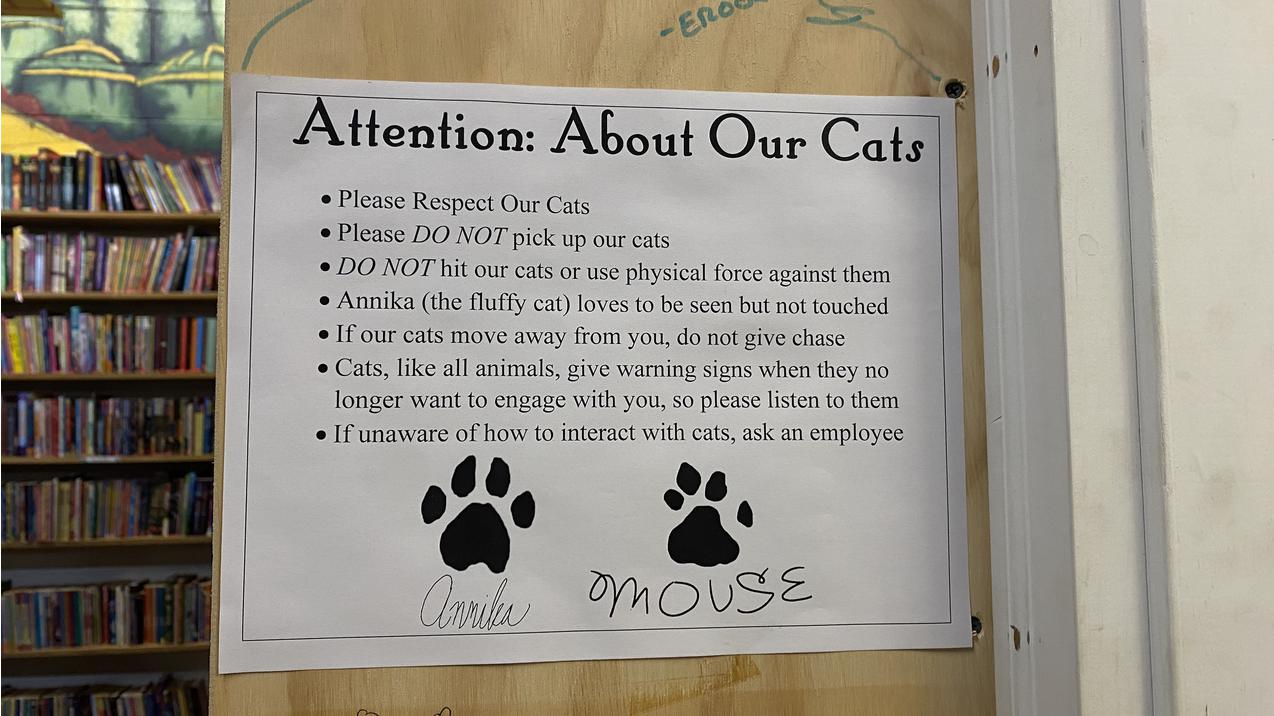 Attention: About Our Cats
• Please Respect Our Cats
• Please DO NOT pick up our cats
• DO NOT hit our cats or use physical force against them
• Annika (the fluffy cat) loves to be seen but not touched
• If our cats move away from you, do not give chase
• Cats, like all animals, give warning signs when they no
longer want to engage with you, so please listen to them
• If unaware of how to interact with cats, ask an employee
Annika MOUSE